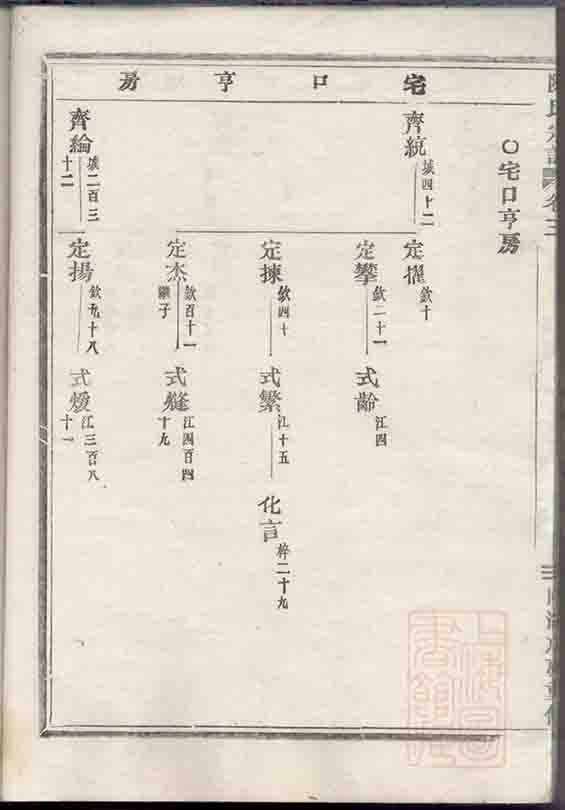 宅口亨房
○宅口亨房
齊統 城四十二
定擢 欽十
定攀 欽二十一
式齡 江四
定揀 欽四十
式繁 江十五
化言 梓二十九
定杰 欽百十一
式 江四百四十九
齊綸 城二百三十二
定揚 欽九十八
式煖 江三百八十一
上海圖書館藏